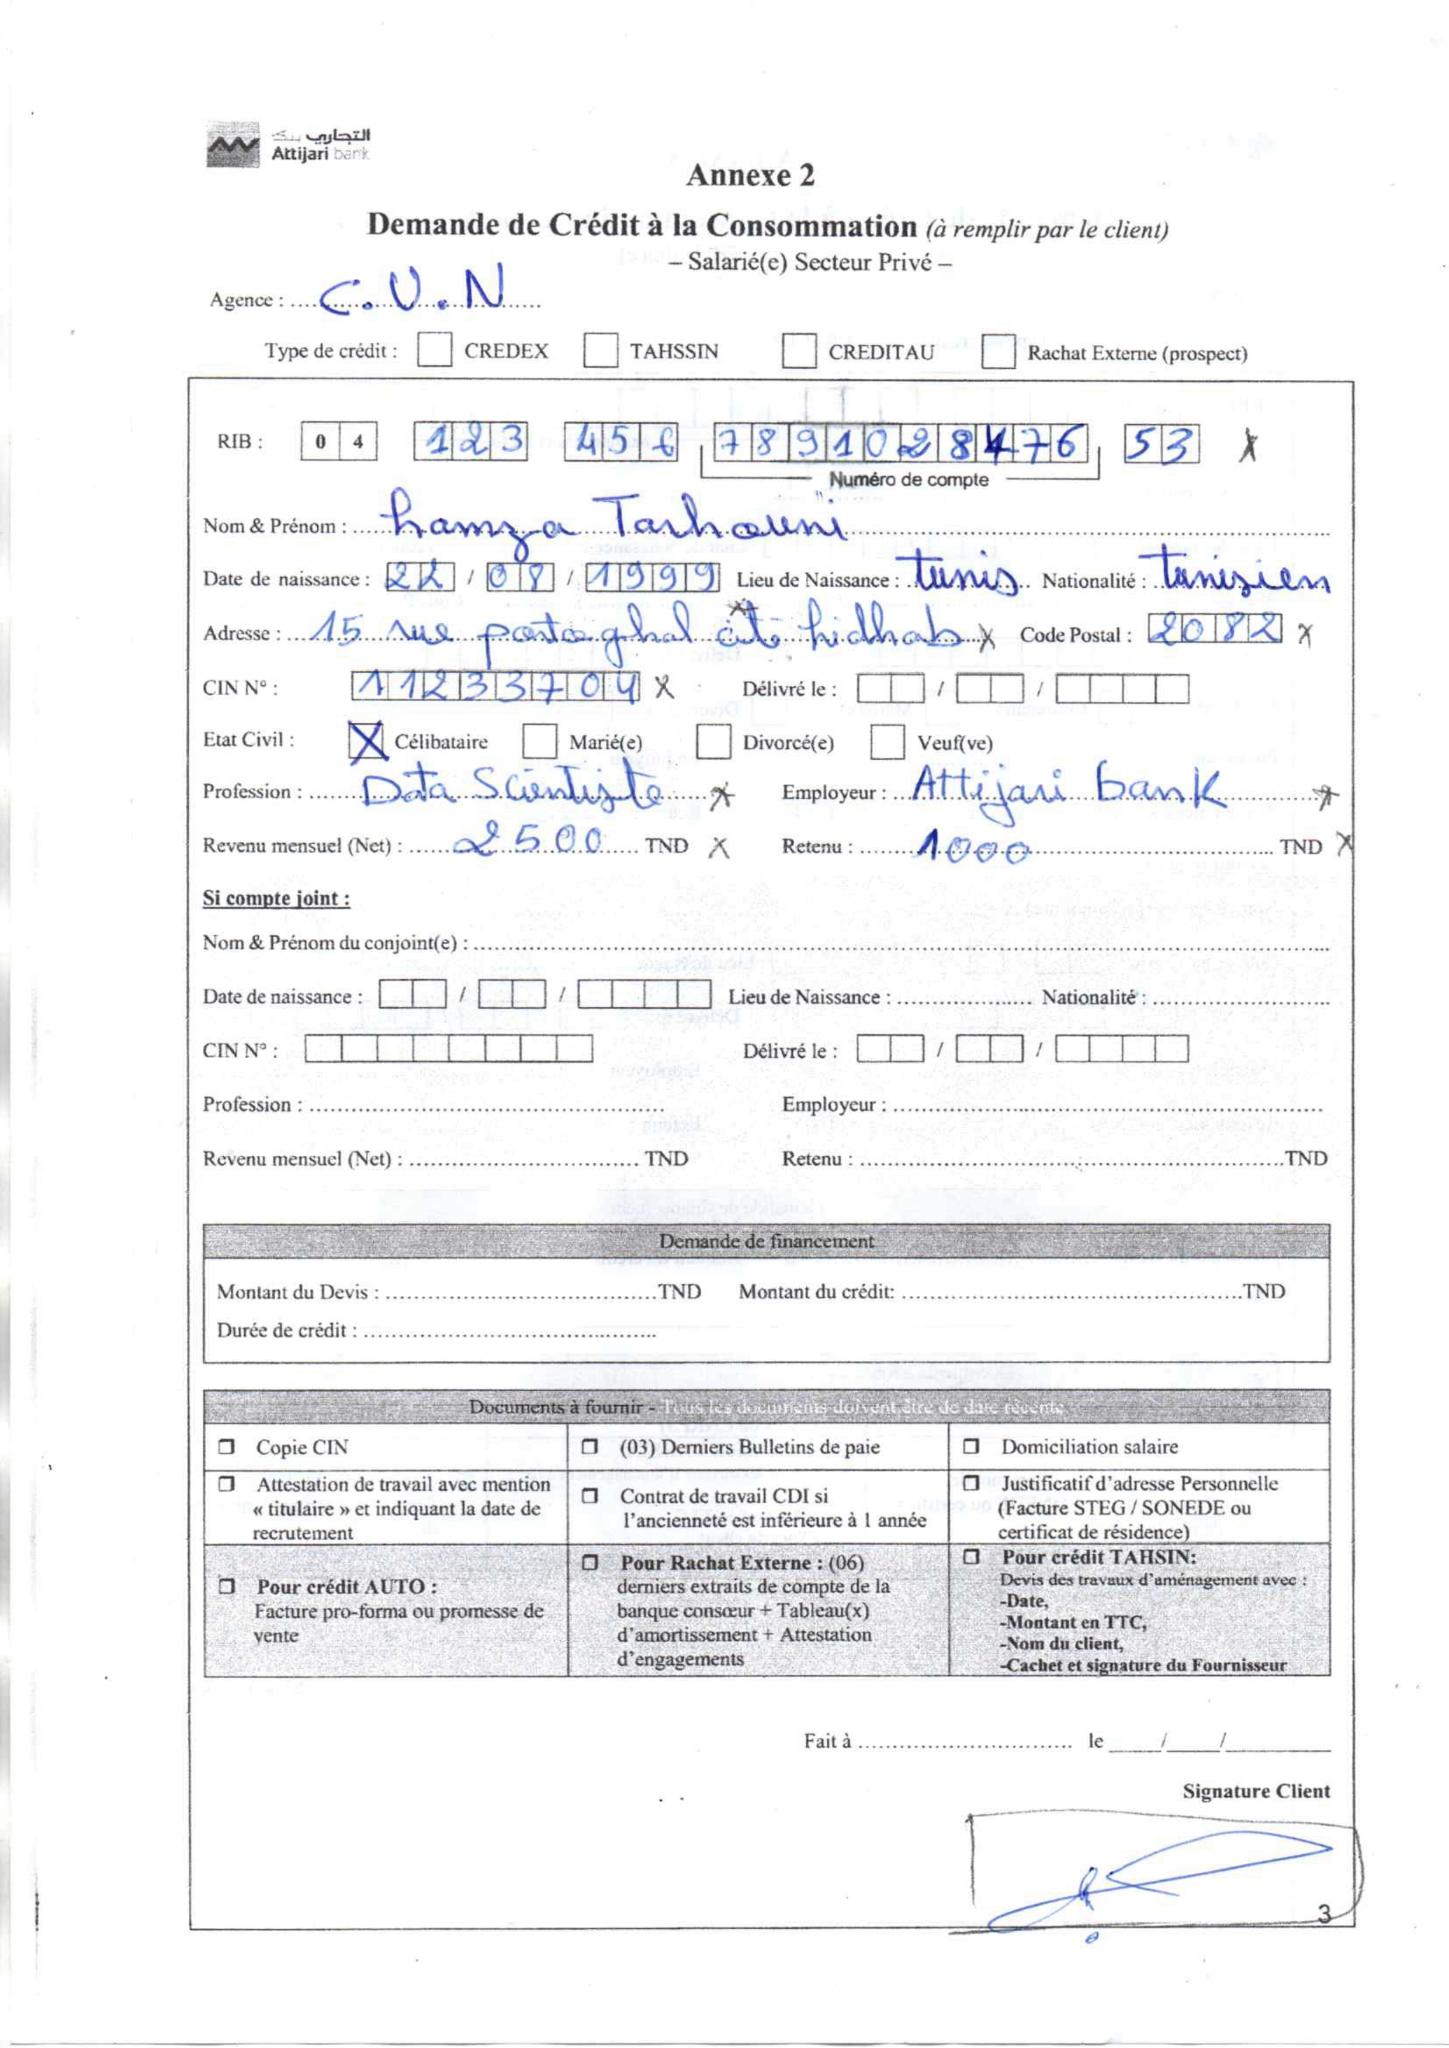 التجاري بنك
Attijari bank
Annexe 2
Demande de Crédit à la Consommation (à remplir par le client)
– Salarié(e) Secteur Privé –
Agence : C.U.N
Type de crédit : CREDEX TAHSSIN CREDITAU Rachat Externe (prospect)
RIB : 04 123 456 78910288476 53 x
Numéro de compte
Nom & Prénom : hamza Tarhouni
Date de naissance : 22 / 08 / 1999 Lieu de Naissance : tunis Nationalité : tunisien
Adresse : 15 rue portoghal cité hidhab x Code Postal : 2082 x
CIN N° : 11233704 x Délivré le : / /
Etat Civil : X Célibataire Marié(e) Divorcé(e) Veuf(ve)
Profession : Data Scientiste x Employeur : Attijari bank x
Revenu mensuel (Net) : 2500 TND x Retenu : 1000 TND x
Si compte joint :
Nom & Prénom du conjoint(e) :
Date de naissance : / / Lieu de Naissance : Nationalité :
CIN N° : Délivré le : / /
Profession : Employeur :
Revenu mensuel (Net) : TND Retenu : TND
Demande de financement
Montant du Devis : TND Montant du crédit: TND
Durée de crédit :
Documents à fournir - Tous les documents doivent être de date récente
Copie CIN
(03) Derniers Bulletins de paie
Domiciliation salaire
Attestation de travail avec mention
« titulaire » et indiquant la date de
recrutement
Contrat de travail CDI si
l'ancienneté est inférieure à 1 année
Justificatif d'adresse Personnelle
(Facture STEG / SONEDE ou
certificat de résidence)
Pour crédit AUTO :
Facture pro-forma ou promesse de
vente
Pour Rachat Externe : (06)
derniers extraits de compte de la
banque consœur + Tableau(x)
d'amortissement + Attestation
d'engagements
Pour crédit TAHSIN:
Devis des travaux d'aménagement avec :
-Date,
-Montant en TTC,
-Nom du client,
-Cachet et signature du Fournisseur
Fait à le / /
Signature Client
3